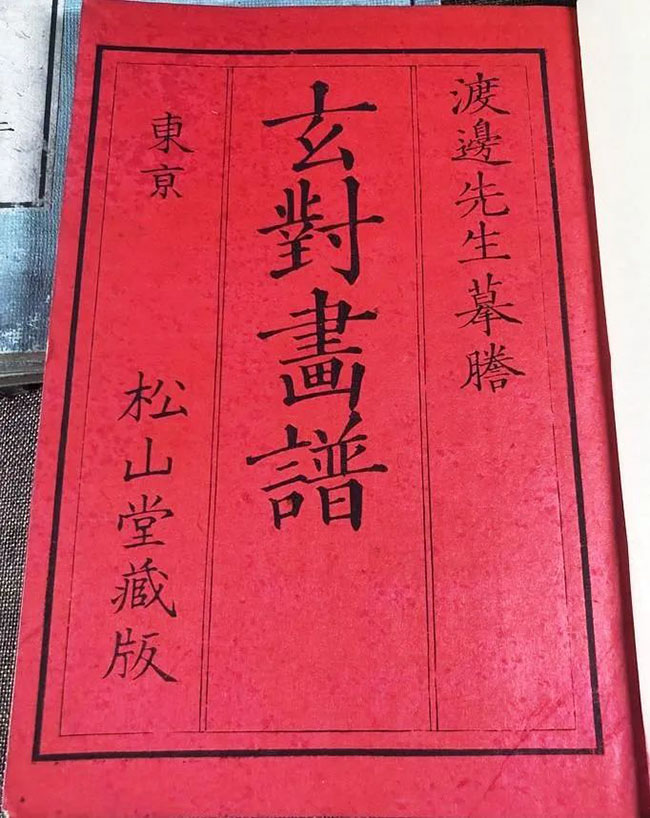 渡邊先生摹謄
玄對畫譜
東京
松山堂藏版